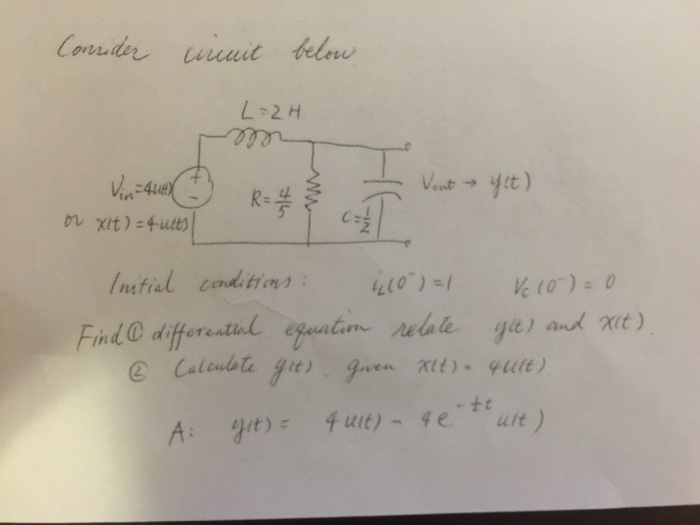 Consider circuit below
L=2H
Vin=4u(t)
or x(t)=4u(t)
R=4/5
C=1/2
Vout → y(t)
Initial conditions: iL(0-)=1 Vc(0-)=0
Find ① differential equation relate y(t) and x(t).
② Calculate y(t). given x(t)=4u(t)
A: y(t)= 4u(t)-4e u(t)